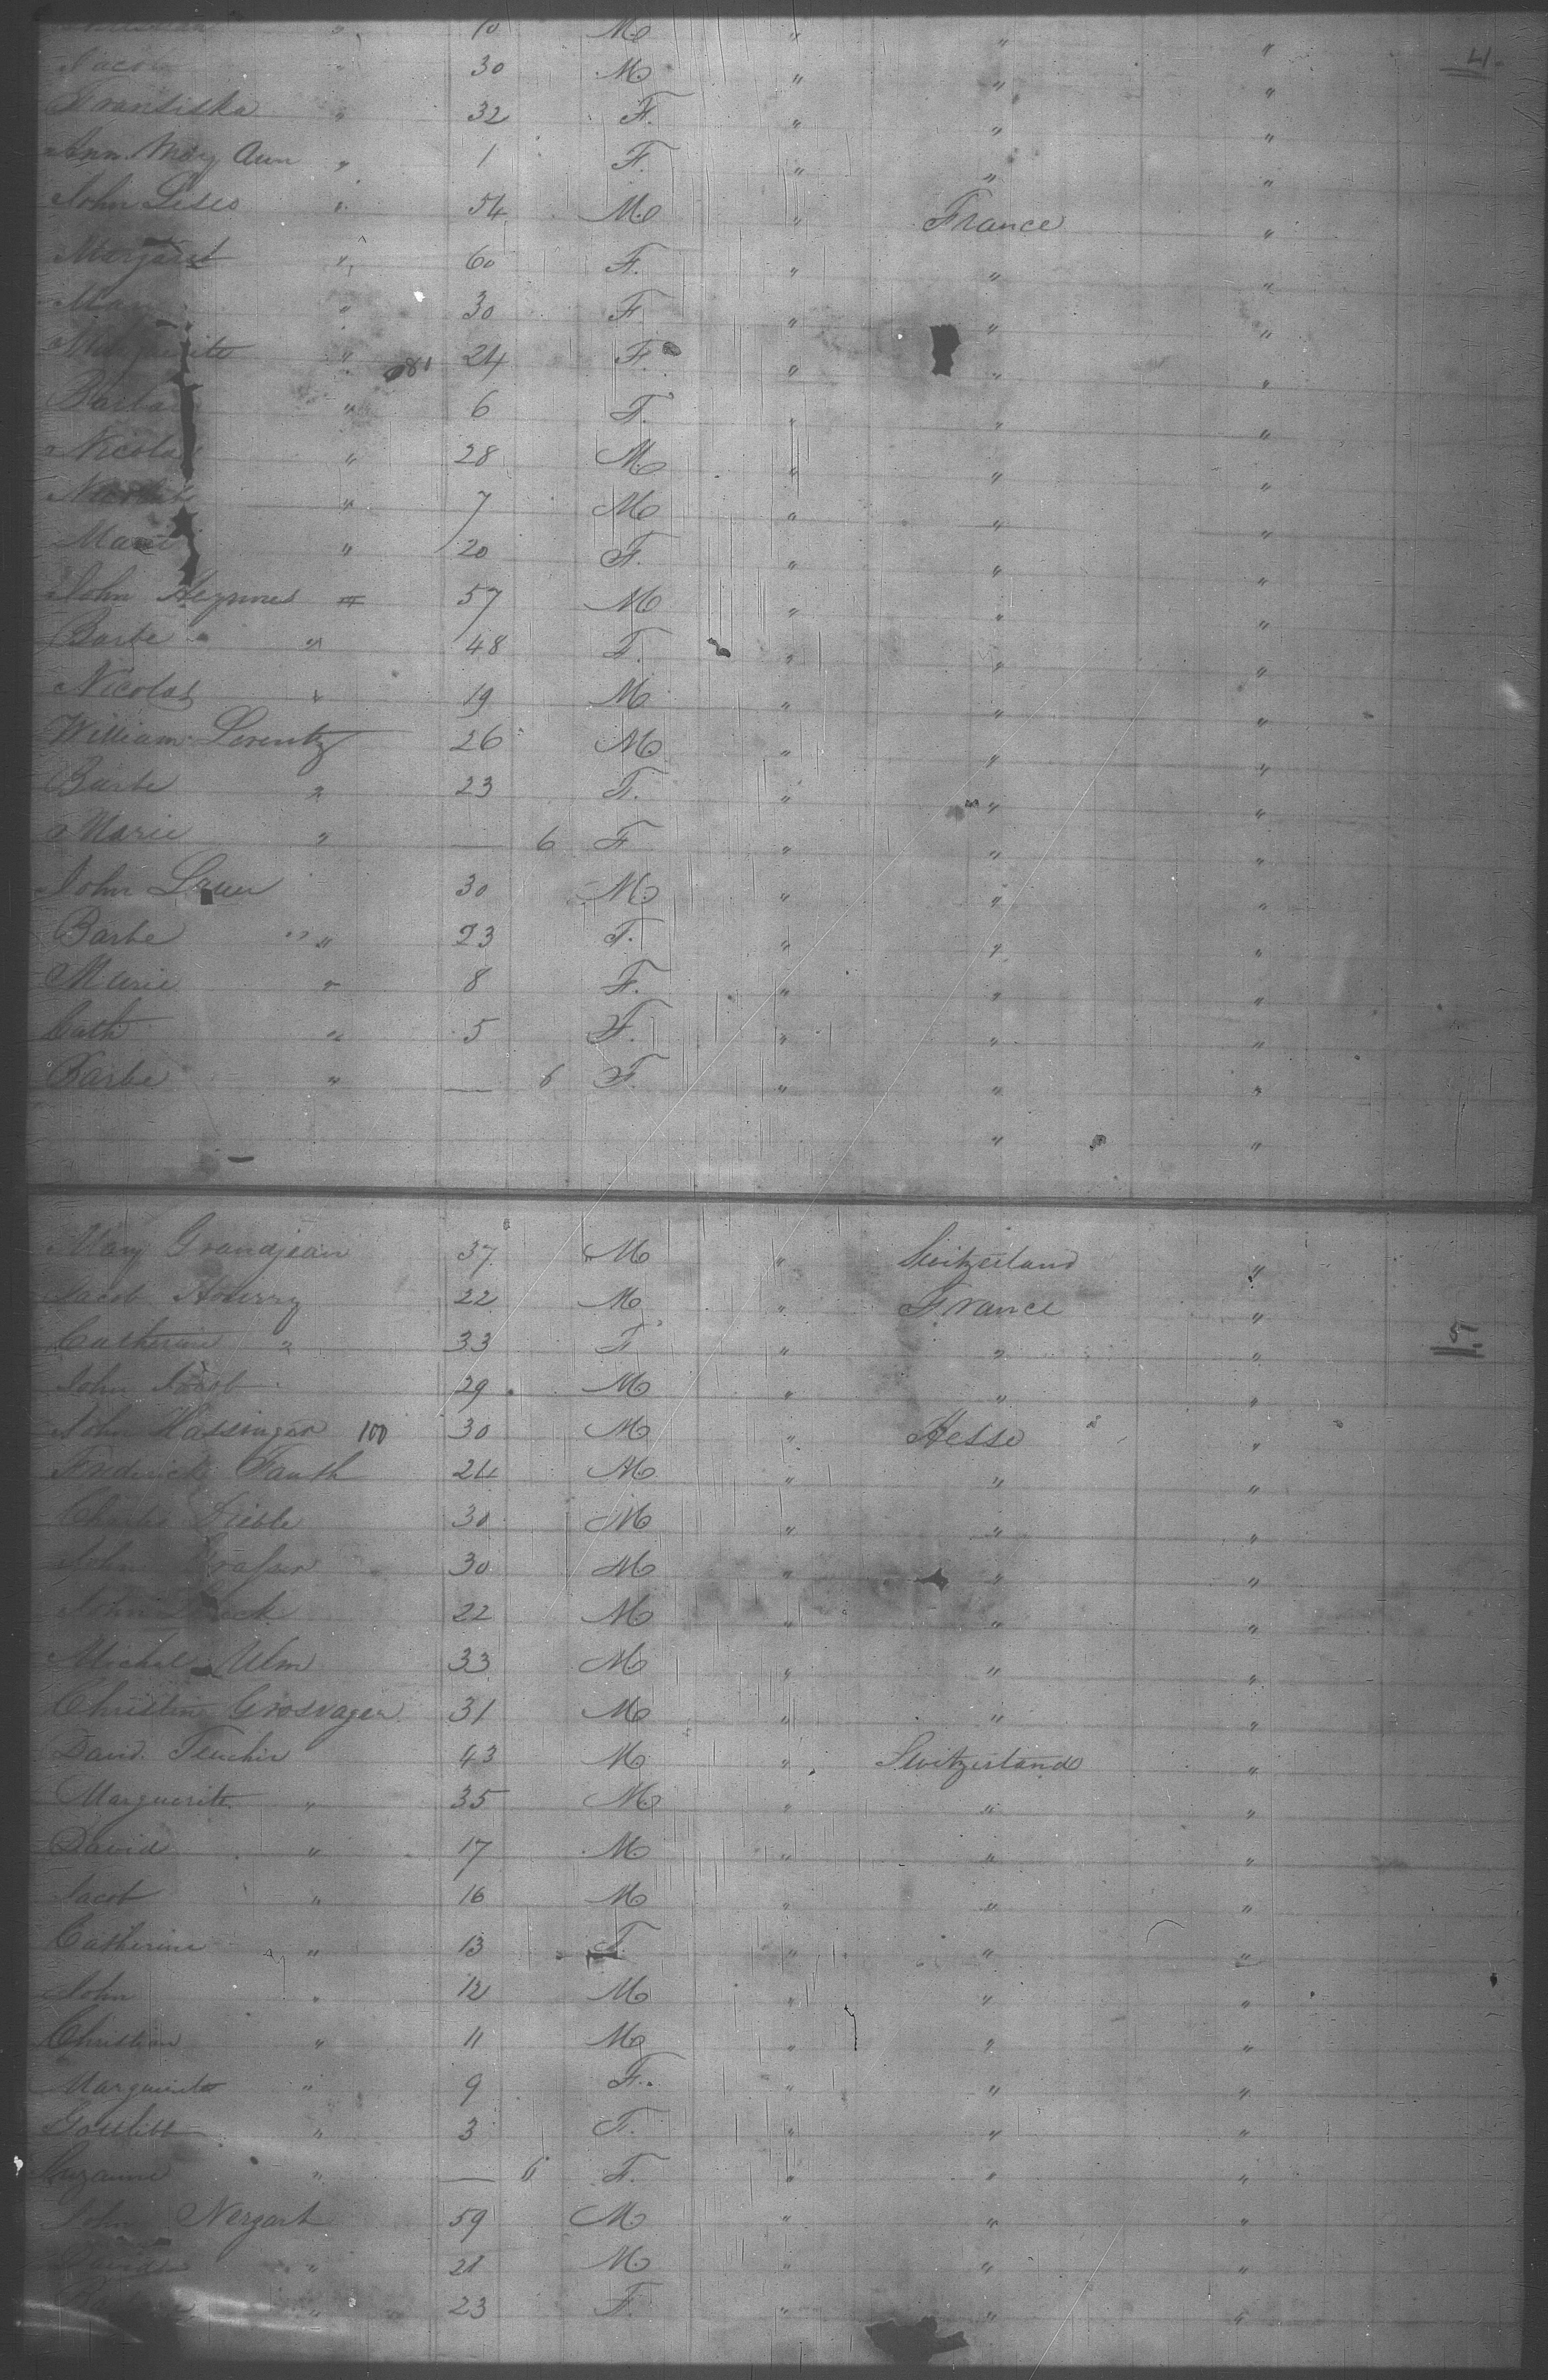 10 M " " "
Jacob " 30 M " " " 4
Fransiska " 32 F. " " "
Ann Mary Ann " 1 F. " " "
John " 54 M " France "
Margaret " 60 F. " " "
30 F " " "
Marguerite " 24 F. " " "
" 6 F. " " "
Nicolas " 28 M " " "
" 7 M " " "
Marie " 20 F. " " "
John 57 M " " "
Barbe " 48 F. " " "
Nicolas " 19 M " " "
William Lorentz 26 M " " "
Barbe " 23 F. " " "
Marie " — 6 F " " "
John 30 M " " "
Barbe " 23 F. " " "
Marie " 8 F. " " "
Cath " 5 F. " " "
Barbe " — 6 F. " " "
" "
Mary Grandjean 37 M " Switzerland "
Jacob 22 M " France "
Catherine " 33 F " " " 5
John 29 M " " "
John Hassinger 100 30 M " Hesse "
Frederick Fauth 24 M " " "
Charles 30 M " " "
John 30 M " " "
John 22 M " " "
Michel Ulm 33 M " " "
Christian Grosvager 31 M " " "
David 43 M " Switzerland "
Marguerite " 35 M " " "
David " 17 M " " "
Jacob " 16 M " " "
Catherine " 13 F. " " "
John " 12 M " " "
Christian " 11 M " " "
Marguerite " 9 F. " " "
Gottlieb " 3 F. " " "
Suzanne " — 6 F. " " "
John Nergart 59 M " " "
David " 21 M " " "
" 23 F. " " "